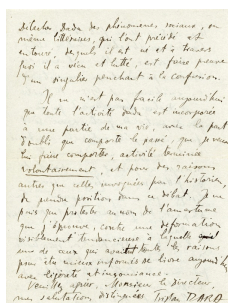 détacher Dada des phénomènes sociaux, ou
même littéraires, qui l'ont précédé et
entouré, desquels il est né et à travers
quoi il a vécu et lutté, est faire preuve
d'un singulier penchant à la confusion.
Il ne m'est pas facile aujourd'hui
que toute l'activité dada est incorporée
à une partie de ma vie, avec la part
d'oubli que comporte le passé, que je veux
lui faire comporter, activité terminée
volontairement, et pour des raisons
autres que celle, invoquées par l'historien,
de prendre position dans ce débat. Je ne
puis que protester au nom de l'amertume
que j'éprouve, contre une déformation
visiblement tendancieuse à laquelle
un de ceux qui les raisons
pour être mieux informés se livre aujourd'hui
avec légèreté et insouciance.
Veuillez agréer, Monsieur le Directeur
mes salutations distinguées Tristan